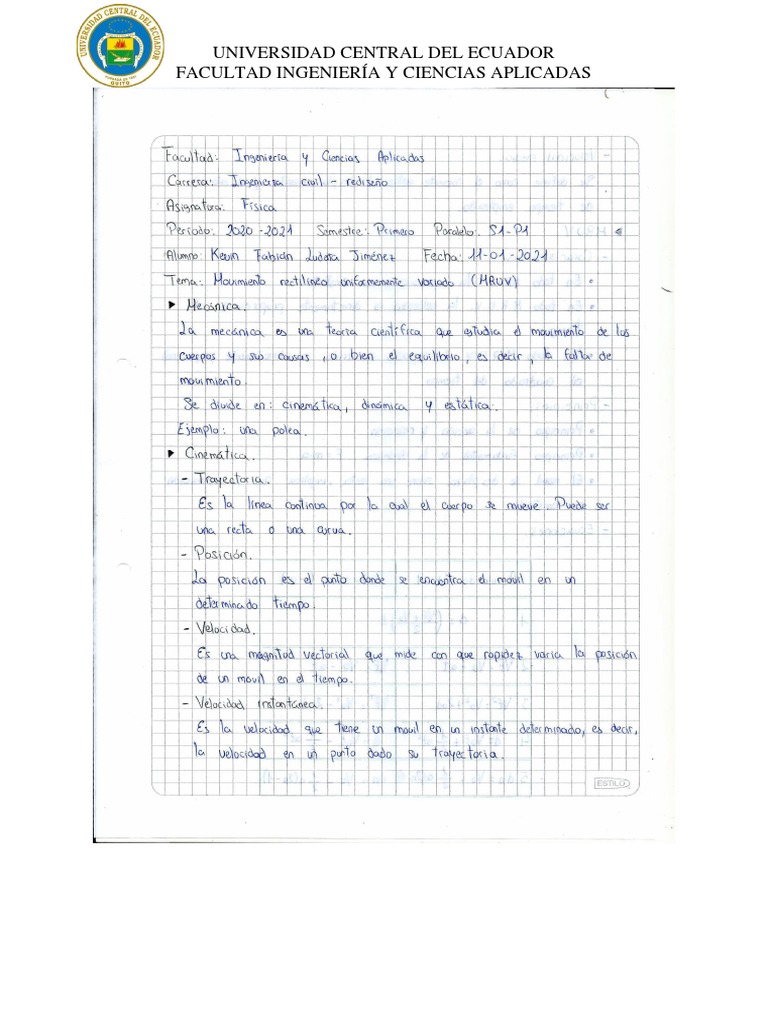 UNIVERSIDAD CENTRAL DEL ECUADOR
FACULTAD INGENIERÍA Y CIENCIAS APLICADAS
UNIVERSIDAD CENTRAL DEL ECUADOR
QUITO
Facultad: Ingeniería y Ciencias Aplicadas
Carrera: Ingeniersa civil - rediseño
Asignatura: Física
Período: 2020-2021 Semestre: Primero Paralelo: S1-P1
Alumno: Kevin Fabián Ludeña Jiménez Fecha: 11-01-2021
Tema: Movimiento rectilíneo uniformemente variado (MRUV)
▶ Mecánica.
La mecánica es una teoría científica que estudia el movimiento de los
cuerpos y sus causas, o bien el equilibrio, es decir, la falta de
movimiento.
Se divide en: cinemática, dinámica y estática.
Ejemplo: una polea.
▶ Cinemática.
- Trayectoria.
Es la línea continua por la cual el cuerpo se mueve. Puede ser
una recta o una curva.
- Posición.
La posición es el punto donde se encuentra el movil en un
determinado tiempo.
- Velocidad.
Es una magnitud vectorial que, mide con que rapidez varia la posición
de un movil en el tiempo.
- Velocidad instantánea.
Es la velocidad que tiene un movil en un instante determinado, es decir,
la velocidad en un punto dado su trayectoria.
ESTILO